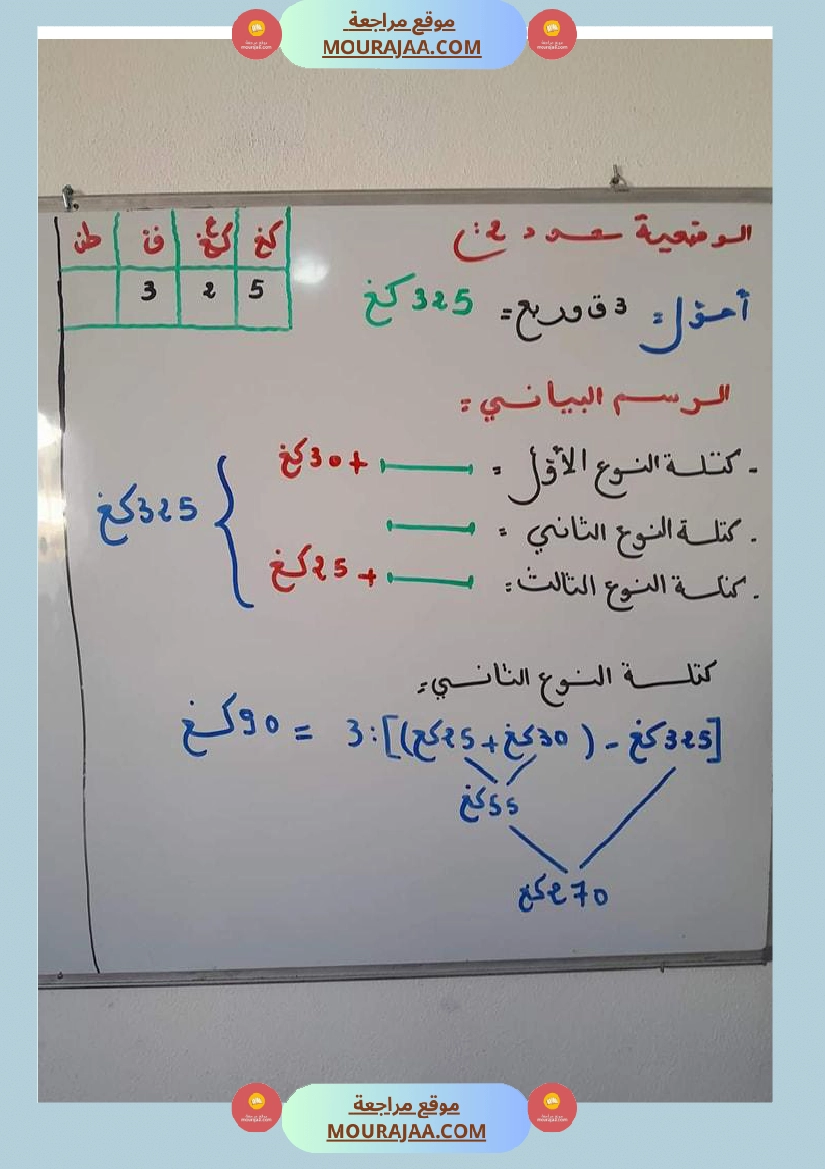 موقع مراجعة
MOURAJAA.COM
الوضعية عدد 2:
أحول: 3 ق وربع = 325 كغ
طن ق كغ
3 2 5
الرسم البياني =
- كتلة النوع الأول = +30 كغ
. كتلة النوع الثاني =
. كتلة النوع الثالث: +25 كغ
325 كغ
كتلة النوع الثاني =
[325 كغ - (30 كغ + 25 كغ)] : 3 = 90 كغ
55 كغ
270 كغ
موقع مراجعة
MOURAJAA.COM